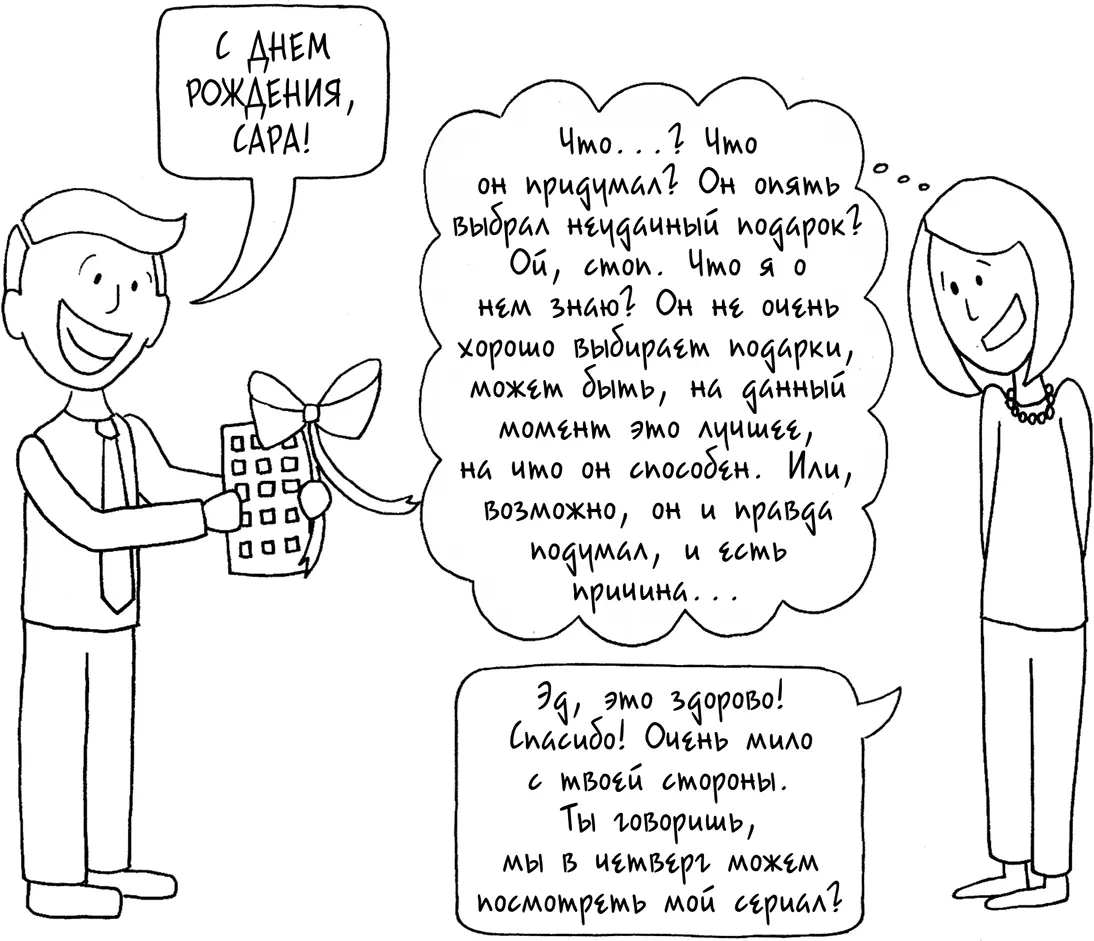 С ДНЕМ
РОЖДЕНИЯ,
САРА!
Что...? Что
он придумал? Он опять
выбрал неудачный подарок?
Ой, стоп. Что я о
нем знаю? Он не очень
хорошо выбирает подарки,
может быть, на данный
момент это лучшее,
на что он способен. Или,
возможно, он и правда
подумал, и есть
причина...
Эд, это здорово!
Спасибо! Очень мило
с твоей стороны.
Ты говоришь,
мы в четверг можем
посмотреть мой сериал?